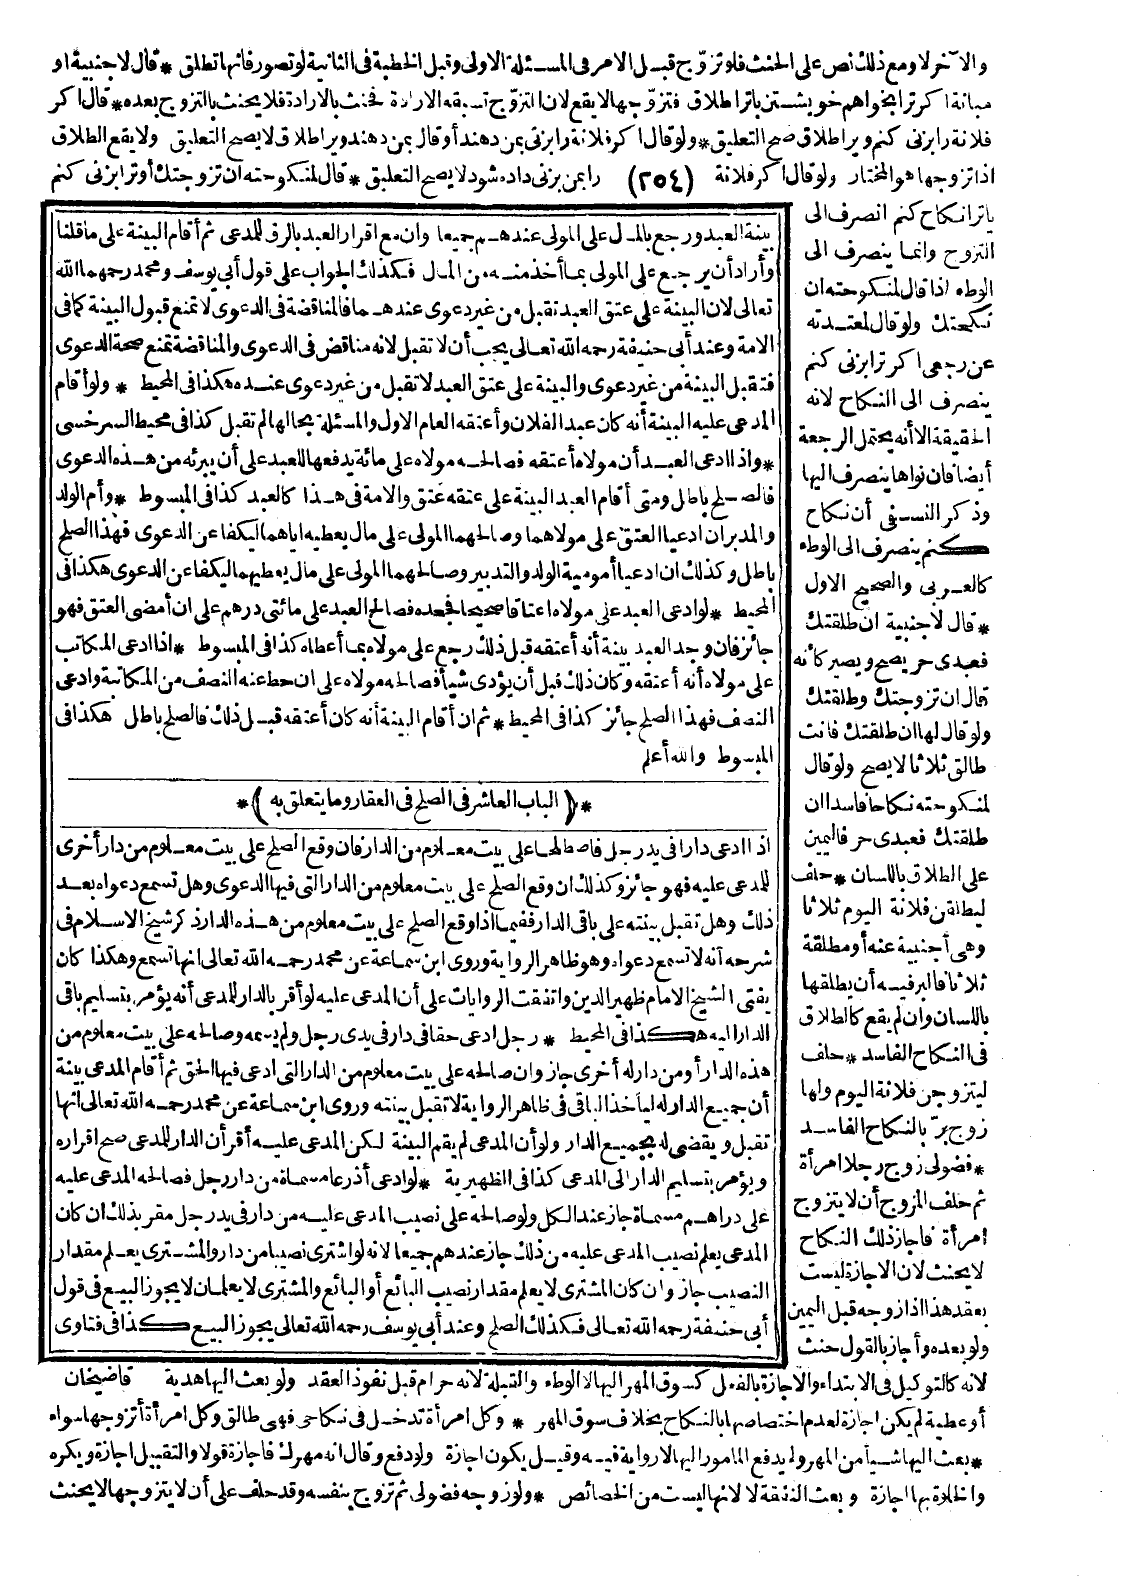 والآخر لا ومع ذلك نص على الحنث فلو تزوّج قبل الامر فى المسئلة الاولى وقبل الخطبة فى الثانية لو تصور فانها تطلق * قال لاجنبية او
مبانة اكر ترا بخواهم خويشتن باتر اطلاق فتزوّجها لا يقع لان التزوّج تسبقه الارادة فحنث بالارادة فلا يحنث بالتزوج بعده * قال اكر
فلانة رابزنى كنم ويرا طلاق صح التعليق * ولو قال اكر فلانة رابزنى بمن دهند أو قال بمن دهند ويرا طلاق لا يصح التعليق ولا يقع الطلاق
اذا تزوجها هو المختار ولو قال اكر فلانة (٢٥٤) رابمن بزنى داده شود لا يصح التعليق * قال لمنكوحته ان تزوجتك أو ترابزنى كنم
ياترا نكاح كنم انصرف الى
التزوج وانما ينصرف الى
الوطء اذا قال لمنكوحته ان
نكحتك ولو قال لمعتدته
عن رجعى اكر ترابزنى كنم
ينصرف الى النكاح لانه
الحقيقة الا أنه يحتمل الرجعة
أيضا فان نواها ينصرف اليها
وذكر النسفى أن نكاح
كنم ينصرف الى الوطء
كالعربى والصحيح الاول
* قال لاجنبية ان طلقتك
فعبدى حر يصح ويصير كأنه
قال ان تزوجتك وطلقتك
ولو قال لها ان طلقتك فانت
طالق ثلاثا لا يصح ولو قال
لمنكوحته نكاحا فاسدا ان
طلقتك فعبدى حر فاليمين
على الطلاق باللسان * حلف
ليطلقن فلانة اليوم ثلاثا
وهى أجنبية عنه أو مطلقة
ثلاثا فالبر فيه أن يطلقها
باللسان وان لم يقع كالطلاق
فى النكاح الفاسد * حلف
ليتزوجن فلانة اليوم ولها
زوج برّ بالنكاح الفاسد
* فضولى زوج رجلا امرأة
ثم حلف المزوج أن لا يتزوج
امرأة فاجاز ذلك النكاح
لا يحنث لان الاجازة ليست
بعقد هذا اذا زوجه قبل اليمين
ولو بعده وأجاز بالقول حنث
بينة العبد ورجع بالمال على المولى عندهم جميعا وان مع اقرار العبد بالرق للمدعى ثم أقام البينة على ما قلنا
وأراد أن يرجع على المولى بما أخذ منه من المال فكذلك الجواب على قول أبى يوسف ومحمد رحمهما الله
تعالى لان البينة على عتق العبد تقبل من غير دعوى عندهما فالمناقضة فى الدعوى لا تمنع قبول البينة كما فى
الامة وعند أبى حنيفة رحمه الله تعالى يجب أن لا تقبل لانه مناقض فى الدعوى والمناقضة تمنع صحة الدعوى
فتقبل البينة من غير دعوى والبينة على عتق العبد لا تقبل من غير دعوى عنده هكذا فى المحيط * ولو أقام
المدعى عليه البينة أنه كان عبد الفلان وأعتقه العام الاول والمسئلة بحالها لم تقبل كذا فى محيط السرخسى
* واذا ادعى العبد أن مولاه أعتقه فصالحه مولاه على مائة يدفعها للعبد على أن يبرئه من هذه الدعوى
فالصلح باطل ومتى أقام العبد البينة على عتقه عتق والامة فى هذا كالعبد كذا فى المبسوط * وأم الولد
والمدبر ان ادعيا العتق على مولاهما وصالحهما المولى على مال يعطيه اياهما ليكفا عن الدعوى فهذا الصلح
باطل وكذلك ان ادعيا أمومية الولد والتدبير وصالحهما المولى على مال يعطيهما ليكفا عن الدعوى هكذا فى
المحيط * لو ادعى العبد على مولاه اعتاقا صحيحا فجحده فصالح العبد على مائتى درهم على ان أمضى العتق فهو
جائز فان وجد العبد بينة أنه أعتقه قبل ذلك رجع على مولاه بما أعطاه كذا فى المبسوط * اذا ادعى المكاتب
على مولاه أنه أعتقه وكان ذلك قبل أن يؤدى شيأ فصالحه مولاه على ان حط عنه النصف من المكاتبة وادعى
النصف فهذا الصلح جائز كذا فى المحيط * ثم ان أقام البينة أنه كان أعتقه قبل ذلك فالصلح باطل هكذا فى
المبسوط والله أعلم
* (الباب العاشر فى الصلح فى العقار وما يتعلق به) *
اذا ادعى دارا فى يد رجل فاصطلحا على بيت معلوم من الدار فان وقع الصلح على بيت معلوم من دار أخرى
للمدعى عليه فهو جائز وكذلك ان وقع الصلح على بيت معلوم من الدار التى فيها الدعوى وهل تسمع دعواه بعد
ذلك وهل تقبل بينته على باقى الدار ففيما اذا وقع الصلح على بيت معلوم من هذه الدار ذكر شيخ الاسلام فى
شرحه أنه لا تسمع دعواه وهو ظاهر الرواية وروى ابن سماعة عن محمد رحمه الله تعالى انها تسمع وهكذا كان
يفتى الشيخ الامام ظهير الدين واتفقت الروايات على أن المدعى عليه لو أقر بالدار للمدعى أنه يؤمر بتسليم باقى
الدار اليه هكذا فى المحيط * رجل ادعى حقا فى دار فى يدى رجل ولم يسمه وصالحه على بيت معلوم من
هذه الدار أو من دار له أخرى جاز وان صالحه على بيت معلوم من الدار التى ادعى فيها الحق ثم أقام المدعى بينة
أن جميع الدار له ليأخذ الباقى فى ظاهر الرواية لا تقبل بينته وروى ابن سماعة عن محمد رحمه الله تعالى انها
تقبل ويقضى له بجميع الدار ولو أن المدعى لم يقم البينة لكن المدعى عليه أقر أن الدار للمدعى صح اقراره
ويؤمر بتسليم الدار الى المدعى كذا فى الظهيرية * لو ادعى أذرعا مسماة من دار رجل فصالحه المدعى عليه
على دراهم مسماة جاز عند الكل ولو صالحه على نصيب المدعى عليه من دار فى يد رجل مقر بذلك ان كان
المدعى يعلم نصيب المدعى عليه من ذلك جاز عندهم جميعا لانه لو اشترى نصيبا من دار والمشترى يعلم مقدار
النصيب جاز وان كان المشترى لا يعلم مقدار نصيب البائع أو البائع والمشترى لا يعلمان لا يجوز البيع فى قول
أبى حنيفة رحمه الله تعالى فكذلك الصلح وعند أبى يوسف رحمه الله تعالى يجوز البيع كذا فى فتاوى
قاضيخان
لانه كالتوكيل فى الابتداء والاجازة بالفعل كسوق المهر اليها لا الوطء والقبلة لانه حرام قبل نفوذ العقد ولو بعث اليها هدية
أو عطية لم يكن اجازة لعدم اختصاصها بالنكاح بخلاف سوق المهر * وكل امرأة تدخل فى نكاحى فهى طالق وكل امرأة أتزوجها سواء
* بعث اليها شيأ من المهر ولم يدفع المأمور اليها لا رواية فيه وقيل يكون اجازة ولو دفع وقال انه مهرك فاجازة قولا والتقبيل اجازة ويكره
والخلوة بها اجازة وبعث النفقة لا لانها ليست من الخصائص * ولو زوجه فضولى ثم تزوج بنفسه وقد حلف على أن لا يتزوجها لا يحنث